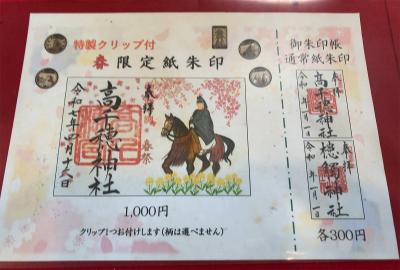 特製クリップ付
春限定紙朱印
奉拝
高千穂神社
春祭
令和七年四月十六日
1,000円
クリップ1つお付けします(柄は選べません)
御朱印帳
通常紙朱印
奉拝
高千穂神社
令和 年一月一日
奉拝
槵觸神社
令和 年一月一日
各300円